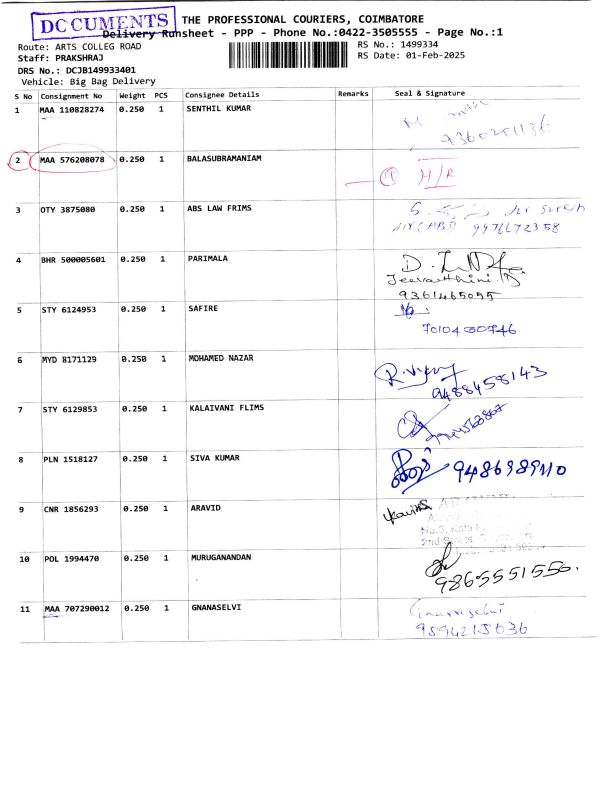 DOCUMENTS
THE PROFESSIONAL COURIERS, COIMBATORE
Delivery Runsheet - PPP - Phone No.:0422-3505555 - Page No.:1
Route: ARTS COLLEG ROAD
RS No.: 1499334
Staff: PRAKSHRAJ
RS Date: 01-Feb-2025
DRS No.: DCJB149933401
Vehicle: Big Bag Delivery
S No Consignment No Weight PCS Consignee Details Remarks Seal & Signature
1 MAA 110828274 0.250 1 SENTHIL KUMAR
2 MAA 576208078 0.250 1 BALASUBRAMANIAM 1 H/R
3 OTY 3875080 0.250 1 ABS LAW FRIMS
9976672358
4 BHR 500005601 0.250 1 PARIMALA
9361465055
5 STY 6124953 0.250 1 SAFIRE
6 MYD 8171129 0.250 1 MOHAMED NAZAR
9488458143
7 STY 6129853 0.250 1 KALAIVANI FLIMS
8 PLN 1518127 0.250 1 SIVA KUMAR 9486989110
9 CNR 1856293 0.250 1 ARAVID
10 POL 1994470 0.250 1 MURUGANANDAN
9865551550.
11 MAA 707290012 0.250 1 GNANASELVI Gnanaselvi